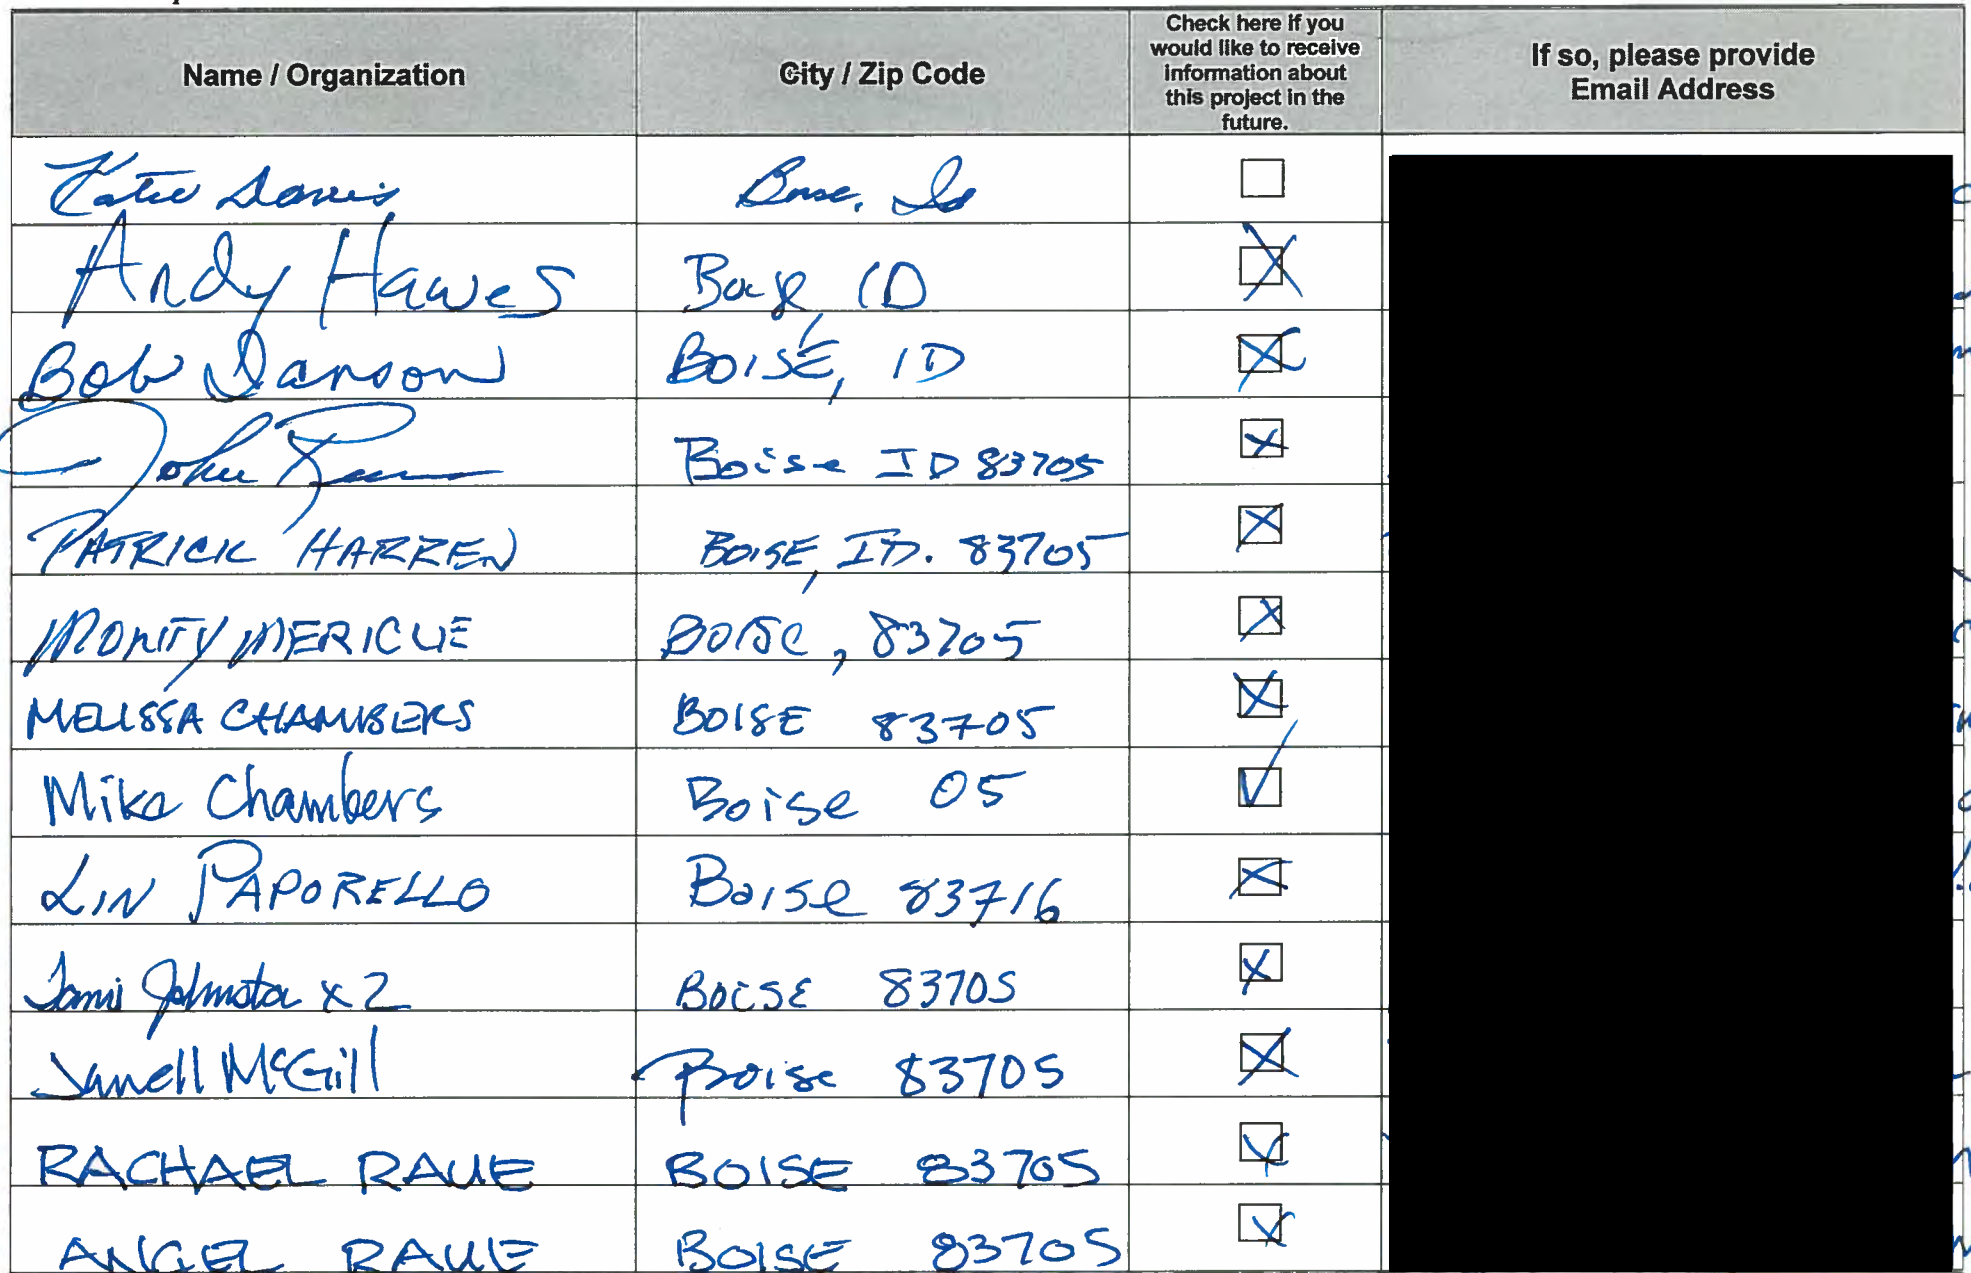 Name / Organization
City / Zip Code
Check here if you
would like to receive
information about
this project in the
future.
If so, please provide
Email Address
Katie Davis Boise, Id
Andy Hawes Boise ID
Bob Danson BOISE, ID
John Boise ID 83705
PATRICK HARREN BOISE, ID. 83705
MONTY MERICLE BOISE, 83705
MELISSA CHAMBERS BOISE 83705
Mike Chambers Boise 05
LIN PAPORELLO Boise 83716
Tami x 2 BOISE 83705
Janell McGill Boise 83705
RACHAEL RAUE BOISE 83705
ANGEL RAUE BOISE 83705